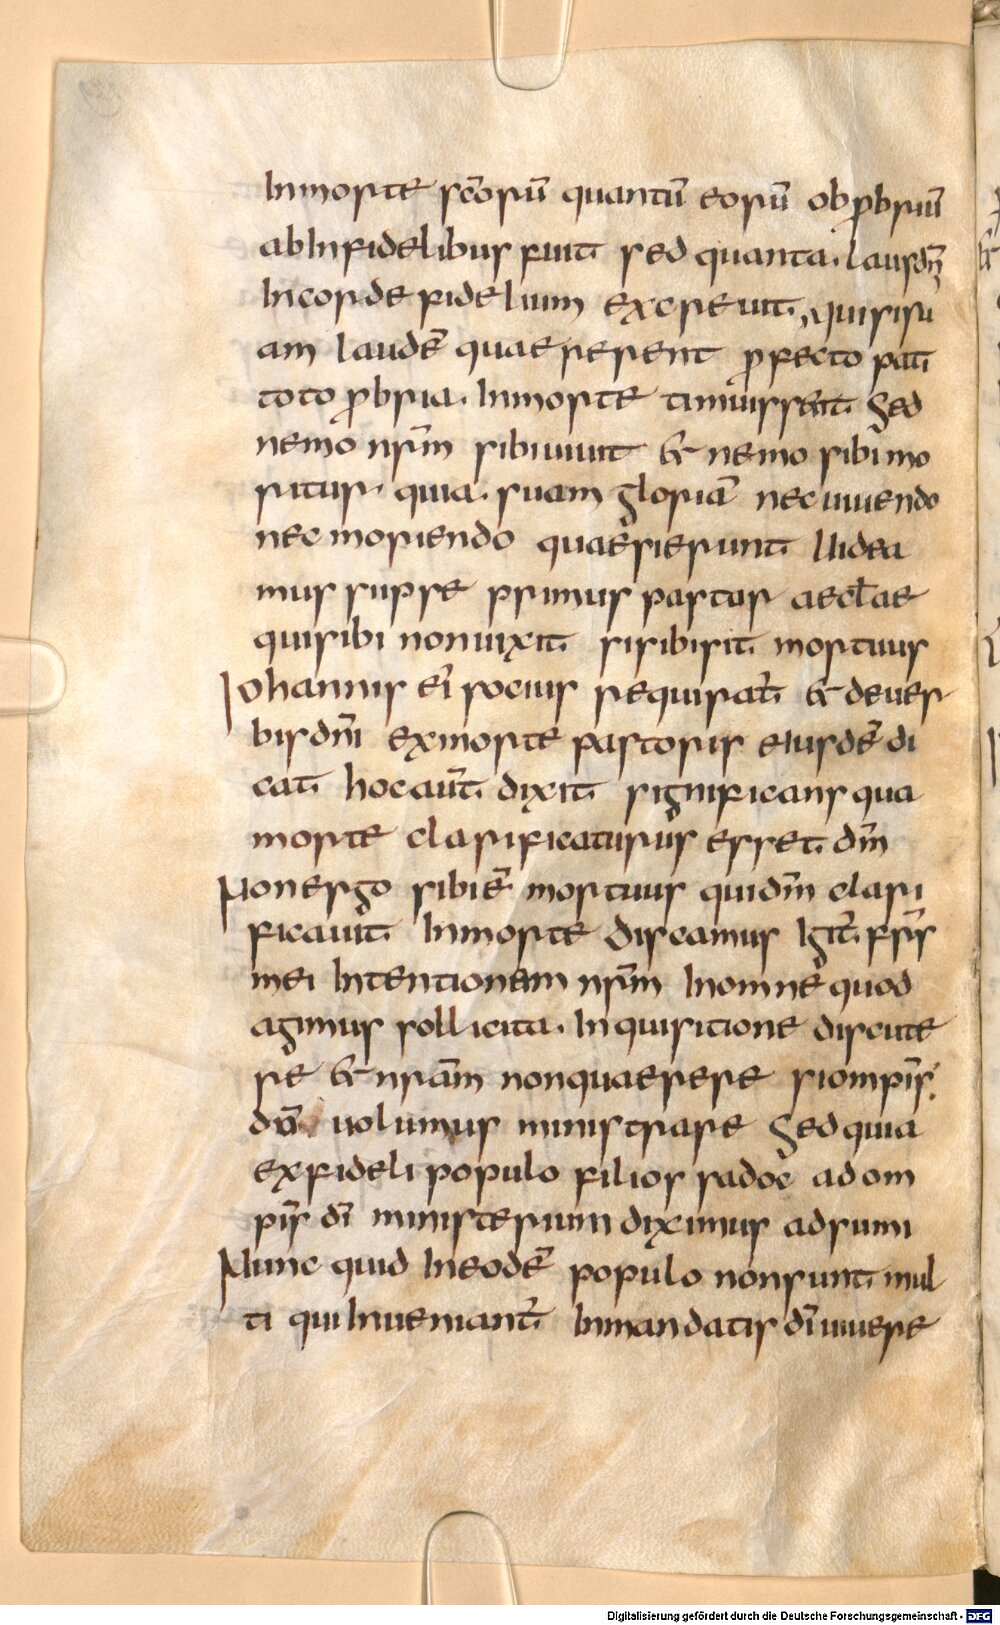 Inmorte sc̄orū quantū eorū obprobriū
abInfidelibus fuit sed quanta. lausdn̄i
Incorde fidelium excreuit, quisisu
am laudē quaererent profecto pati
toto probria. Inmorte timuissent. Sed
nemo nr̄m sibiuiuit & nemo sibimo
ritur. quia. suam gloriā nec uiuendo
nec moriendo quaesierunt Uidea
mus supre primus pastor aecl̄ae
quisibi nonuixit sisibisit mortuus
Iohannis ei socius sequirat̄ & deuer
bisdn̄i exmorte pastoris eiusdē di
cat hocaut̄ dixit significans qua
morte clarificaturus esset dm̄
Nonergo sibiē mortuus quidm̄ clari
ficauit Inmorte Discamus Igit̄ fr̄s
mei Intentionem nr̄m Inomne quod
agimus sollicita. Inquisitione discute
re & nr̄am nonquaerere siomnp̄is
dō uolumus ministrare Sedquia
exfideli populo filios sadoc adom
nip̄is dī ministerium diximus adsumi
Nunc quid Ineodē populo nonsunt mul
ti quiInueniant̄ Inmandatis dī uiuere
Digitalisierung gefördert durch die Deutsche Forschungsgemeinschaft - DFG